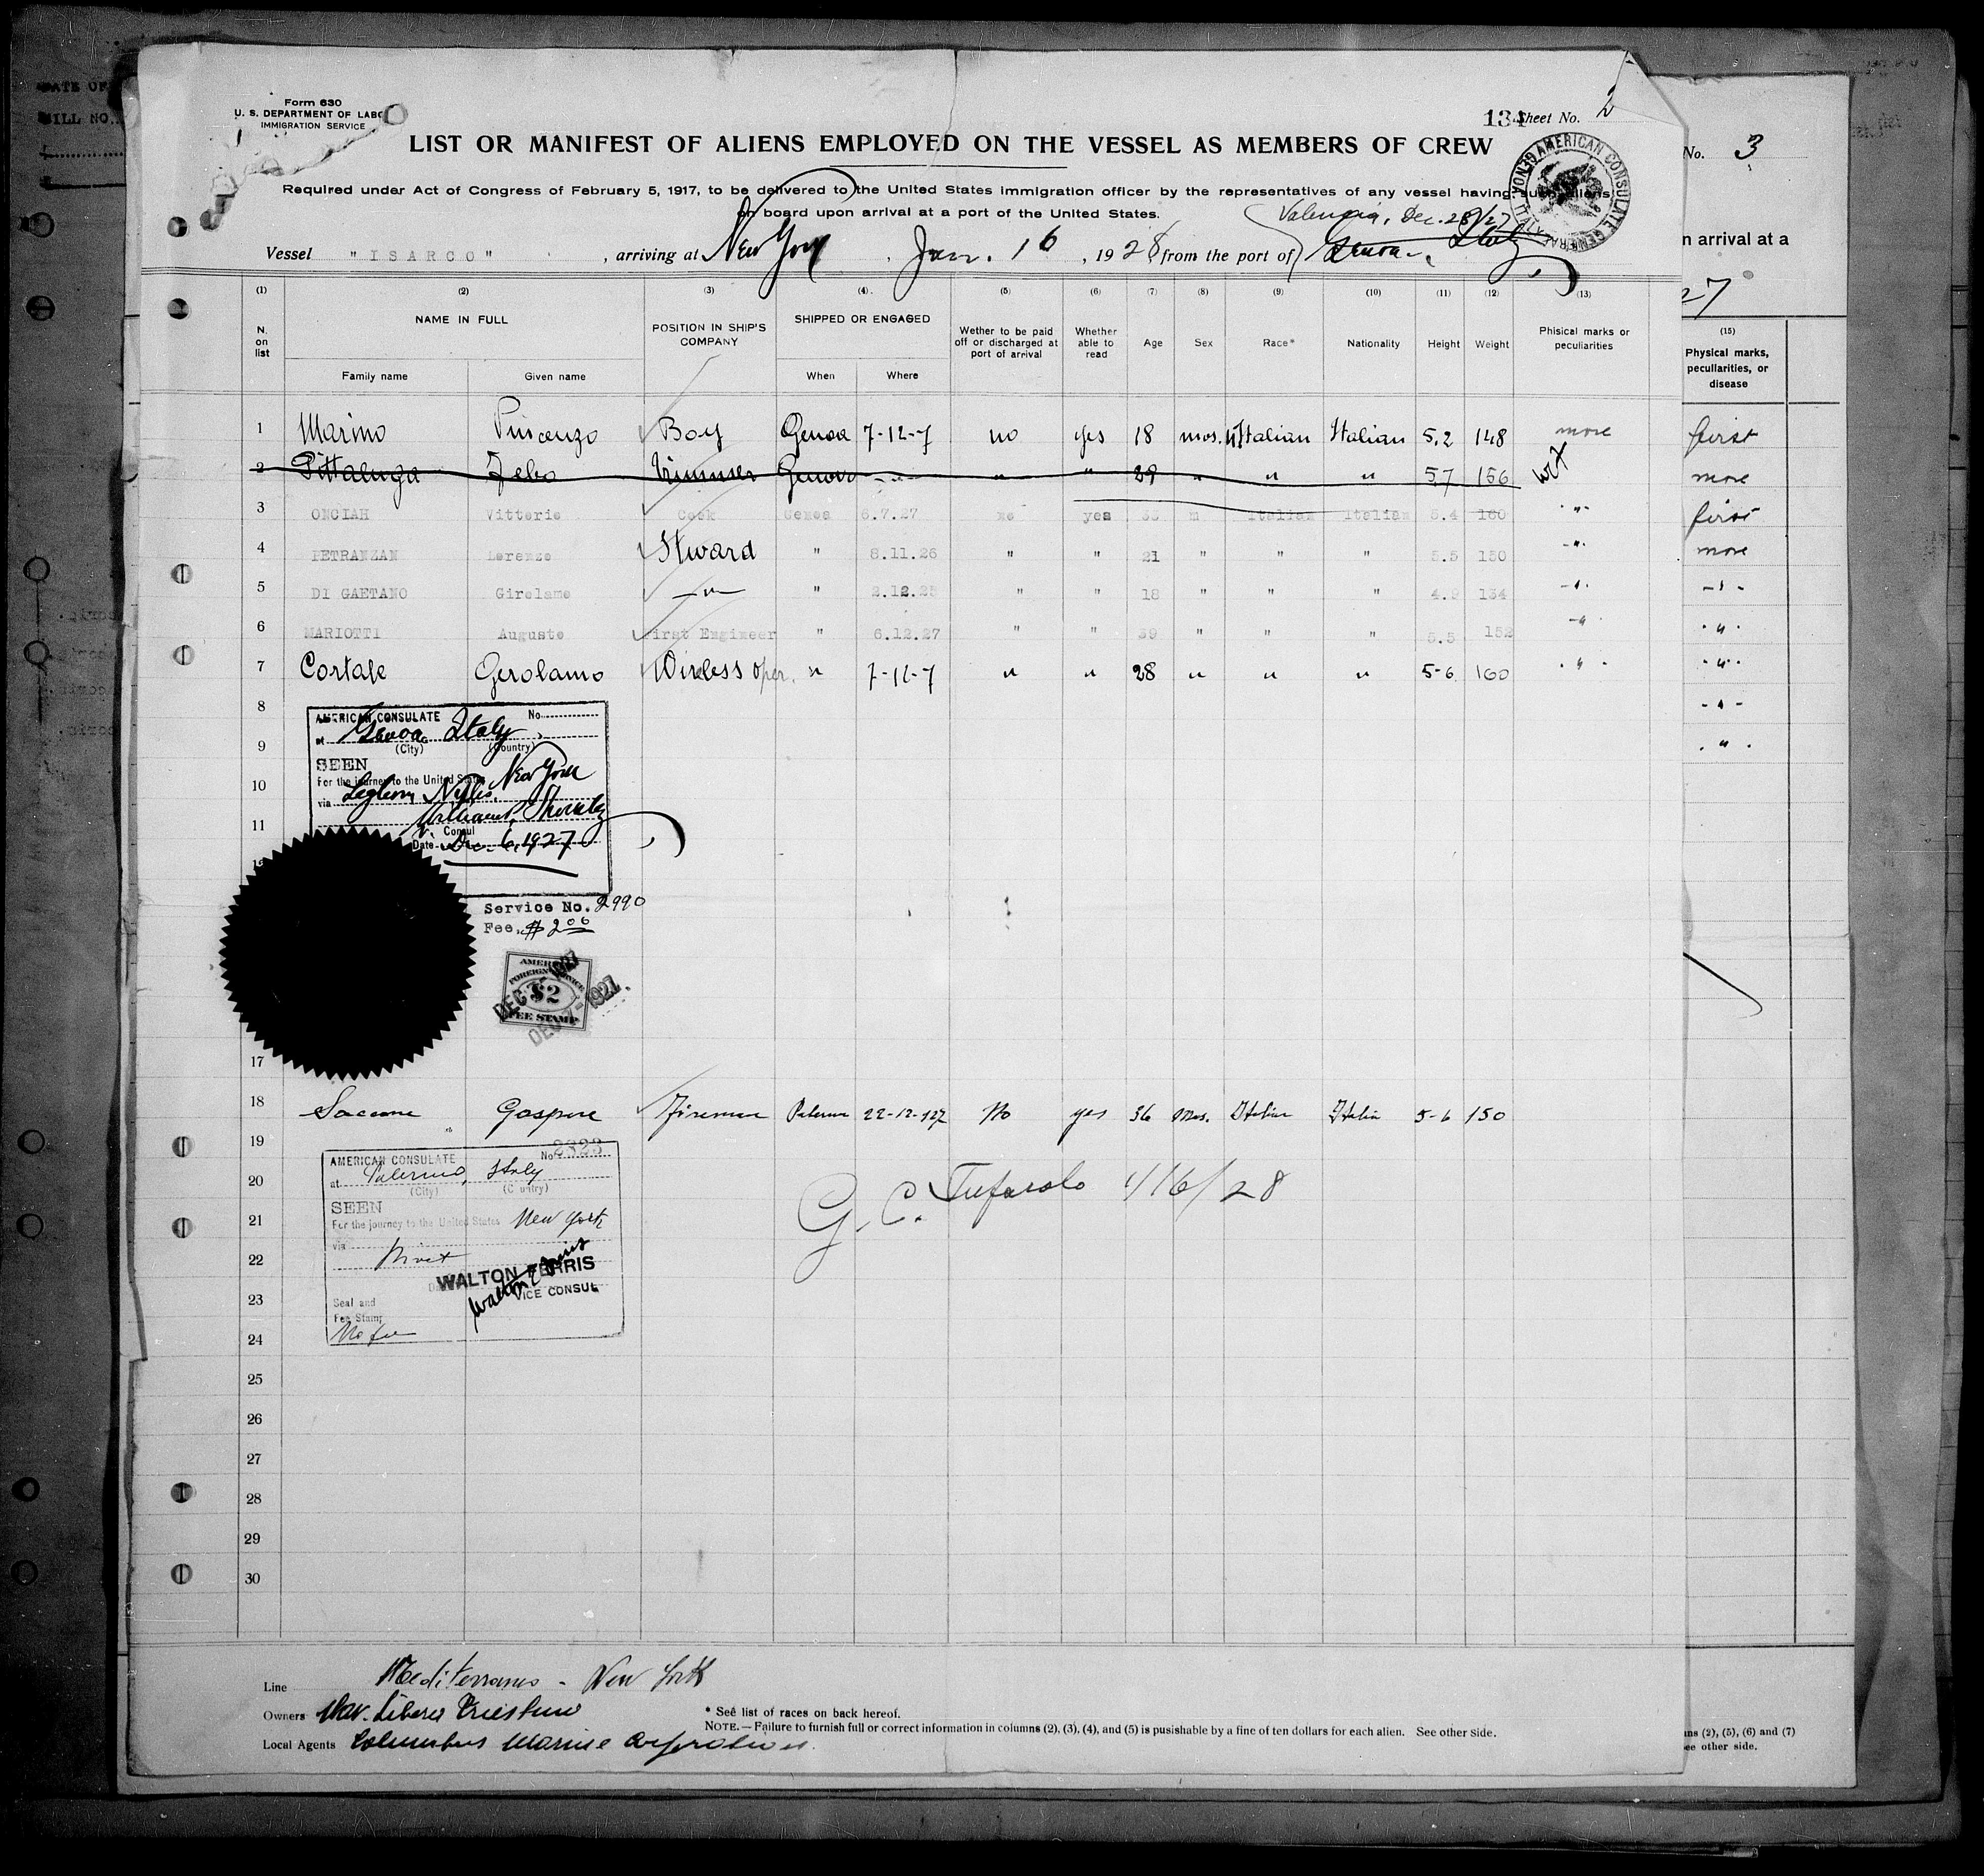 Form 630
U. S. DEPARTMENT OF LABO
IMMIGRATION SERVICE
134 Sheet No. 2
LIST OR MANIFEST OF ALIENS EMPLOYED ON THE VESSEL AS MEMBERS OF CREW
Required under Act of Congress of February 5, 1917, to be delivered to the United States immigration officer by the representatives of any vessel having such aliens
on board upon arrival at a port of the United States.
Valencia, Dec. 28/27
Vessel "ISARCO", arriving at New York, Jan. 16, 1928, from the port of Genoa, Italy
AMERICAN CONSULATE GENERAL GENOA ITALY
(1) (2) (3) (4) (5) (6) (7) (8) (9) (10) (11) (12) (13)
N. on list
NAME IN FULL
Family name
Given name
POSITION IN SHIP'S COMPANY
SHIPPED OR ENGAGED
When
Where
Wether to be paid off or discharged at port of arrival
Whether able to read
Age
Sex
Race*
Nationality
Height
Weight
Phisical marks or peculiarities
1 Marino Vincenzo Boy Genoa 7-12-7 no yes 18 mas. Italian Italian 5,2 148 more
2 Pittaluga Zebo Trimmer Genova " " 29 " " " 57 156
3 ONGIAH Vittorio Cook Genoa 6.7.27 no yes 33 m Italian Italian 5.4 160 "
4 PETRANZAN Lorenzo Stward " 8.11.26 " " 21 " " " 5.5 150 "
5 DI GAETANO Girolamo " " 2.12.25 " " 18 " " " 4.9 134 "
6 MARIOTTI Augusto First Engineer " 6.12.27 " " 39 " " " 5.5 152 "
7 Cortese Gerolamo Wireless oper. " 7-12-7 " " 28 " " " 5-6 160 "
8
9
10
11
AMERICAN CONSULATE No.
at Genoa, Italy
(City) (Country)
SEEN
For the journey to the United States New York
via Leghorn, Naples,
Consul
Date Dec. 6, 1927
Service No. 2990
Fee, $ 2.00
AMERICAN FOREIGN SERVICE
$2
FEE STAMP
DEC 7 - 1927
17
18 Saccone Gaspare Fireman Palermo 22-12-927 No yes 36 Mas. Italian Italia 5-6 150
19
20
21
22
23
24
AMERICAN CONSULATE No. 2323
at Palermo, Italy
(City) (Country)
SEEN
For the journey to the United States New York
via Direct
WALTON FERRIS
VICE CONSUL
Seal and
Fee Stamp
No fee
G. C. Tufarolo 1/16/28
25
26
27
28
29
30
Line Mediterraneo - New York
Owners Nav. Libera Triestina
Local Agents Columbus Marine Corporation
* See list of races on back hereof.
NOTE.—Failure to furnish full or correct information in columns (2), (3), (4), and (5) is pusishable by a fine of ten dollars for each alien. See other side.
No. 3
n arrival at a
27
(15)
Physical marks, peculiarities, or disease
first
more
first
more
"
"
"
"
"
ns (2), (5), (6) and (7)
ee other side.
DATE OF
BILL NO.